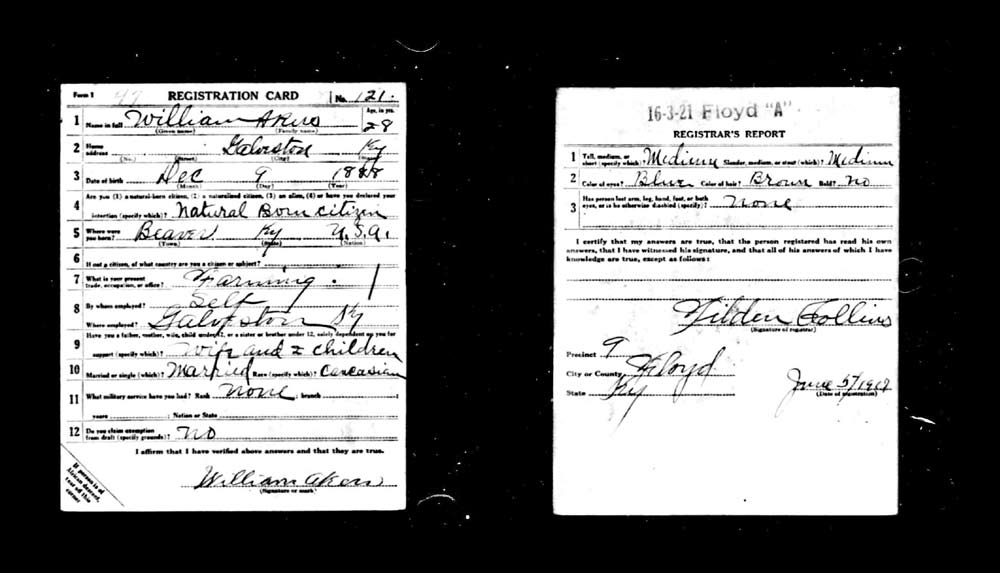 Form 1 REGISTRATION CARD No. 121.
1 Name in full William Akers Age, in yrs. 28
(Given name) (Family name)
2 Home address Galveston Ky
(No.) (Street) (City) (State)
3 Date of birth Dec 9 1888
(Month) (Day) (Year)
4 Are you (1) a natural-born citizen, (2) a naturalized citizen, (3) an alien, (4) or have you declared your
intention (specify which)? Natural Born citizen
5 Where were you born? Beaver Ky U.S.A.
(Town) (State) (Nation)
6 If not a citizen, of what country are you a citizen or subject?
7 What is your present trade, occupation, or office? Farming.
8 By whom employed? Self
Where employed? Galveston Ky
9 Have you a father, mother, wife, child under 12, or a sister or brother under 12, solely dependent on you for
support (specify which)? Wife and 2 children
10 Married or single (which)? Married Race (specify which)? Caucasian
11 What military service have you had? Rank none ; branch ;
years ; Nation or State
12 Do you claim exemption from draft (specify grounds)? no
I affirm that I have verified above answers and that they are true.
William Akers
(Signature or mark)
If person is of
African descent,
tear off this
corner
16-3-21 Floyd "A"
REGISTRAR'S REPORT
1 Tall, medium, or short (specify which)? Medium Slender, medium, or stout (which)? Medium
2 Color of eyes? Blue Color of hair? Brown Bald? no
3 Has person lost arm, leg, hand, foot, or both
eyes, or is he otherwise disabled (specify)? none
I certify that my answers are true, that the person registered has read his own
answers, that I have witnessed his signature, and that all of his answers of which I have
knowledge are true, except as follows:
Tilden Collins
(Signature of registrar)
Precinct 9
City or County Floyd
State Ky June 5/1917
(Date of registration)